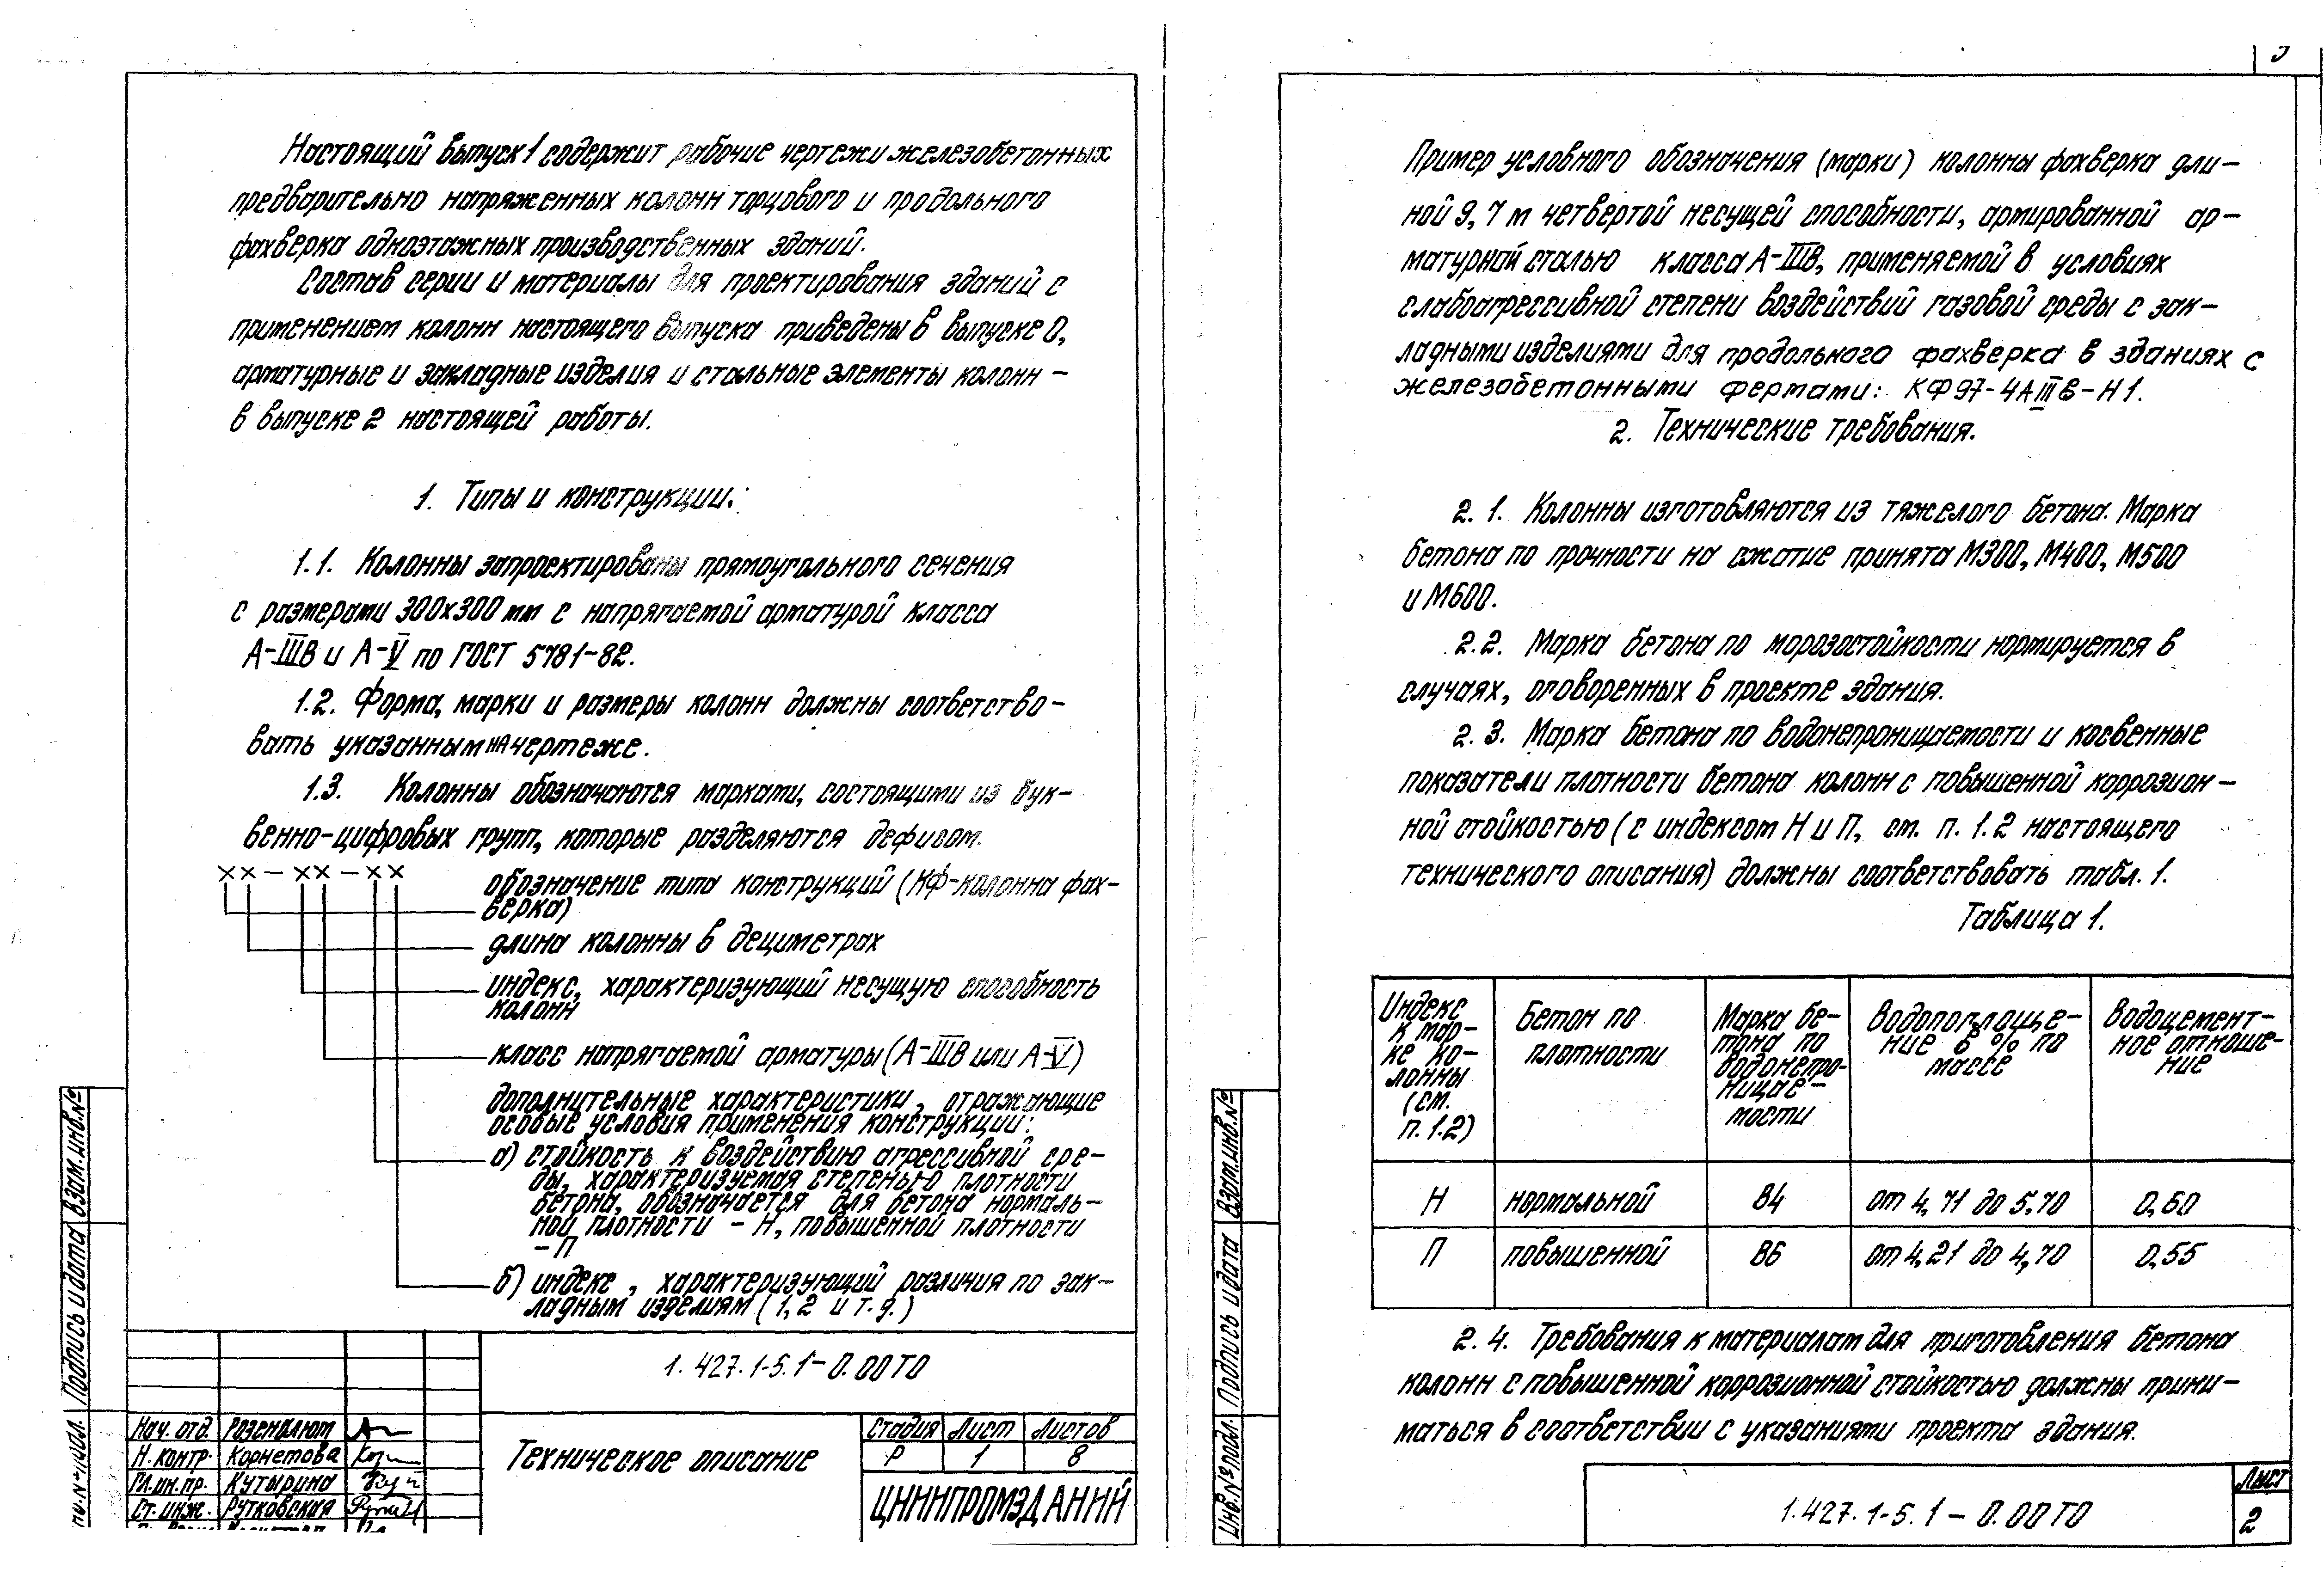 Настоящий выпуск 1 содержит рабочие чертежи железобетонных
предварительно напряженных колонн торцового и продольного
фахверка одноэтажных производственных зданий.
Состав серии и материалы для проектирования зданий с
применением колонн настоящего выпуска приведены в выпуске 0,
арматурные и закладные изделия и стальные элементы колонн –
в выпуске 2 настоящей работы.
1. Типы и конструкции.
1.1. Колонны запроектированы прямоугольного сечения
с размерами 300х300 мм с напрягаемой арматурой класса
А-IIIВ и А-V по ГОСТ 5781-82.
1.2. Форма, марки и размеры колонн должны соответство-
вать указанным на чертеже.
1.3. Колонны обозначаются марками, состоящими из бук-
венно-цифровых групп, которые разделяются дефисом.
ХХ – ХХ – ХХ
обозначение типа конструкций (КФ-колонна фах-
верка)
длина колонны в дециметрах
индекс, характеризующий несущую способность
колонн
класс напрягаемой арматуры (А-IIIВ или А-V)
дополнительные характеристики, отражающие
особые условия применения конструкции:
а) стойкость к воздействию агрессивной сре-
ды, характеризуемая степенью плотности
бетона, обозначается для бетона нормаль-
ной плотности – Н, повышенной плотности
– П
б) индекс, характеризующий различия по зак-
ладным изделиям (1, 2 и т.д.)
1.427.1-5.1-0.00ТО
Нач. отд. Розенблют
Н. контр. Корнетова
Гл.ин.пр. Кутырина
Ст. инж. Рутковская
Техническое описание
Стадия Лист Листов
Р 1 8
ЦНИИПРОМЗДАНИЙ
Взам.инв.№
Подпись и дата
Пример условного обозначения (марки) колонны фахверка дли-
ной 9,7 м четвертой несущей способности, армированной ар-
матурной сталью класса А-IIIВ, применяемой в условиях
слабоагрессивной степени воздействий газовой среды с зак-
ладными изделиями для продольного фахверка в зданиях с
железобетонными фермами: КФ97-4АIIIВ-Н1.
2. Технические требования.
2.1. Колонны изготовляются из тяжелого бетона. Марка
бетона по прочности на сжатие принята М300, М400, М500
и М600.
2.2. Марка бетона по морозостойкости нормируется в
случаях, оговоренных в проекте здания.
2.3. Марка бетона по водонепроницаемости и косвенные
показатели плотности бетона колонн с повышенной коррозион-
ной стойкостью (с индексом Н и П, см. п. 1.2 настоящего
технического описания) должны соответствовать табл. 1.
Таблица 1.
Индекс
к мар-
ке ко-
лонны
(см.
п. 1.2)
Бетон по
плотности
Марка бе-
тона по
водонепро-
ницае-
мости
Водопоглоще-
ние в % по
массе
Водоцемент-
ное отноше-
ние
Н нормальной В4 от 4,71 до 5,70 0,60
П повышенной В6 от 4,21 до 4,70 0,55
2.4. Требования к материалам для приготовления бетона
колонн с повышенной коррозионной стойкостью должны прини-
маться в соответствии с указаниями проекта здания.
1.427.1-5.1-0.00ТО
Лист
2
Взам.инв.№
Подпись и дата
Инв.№ подл.